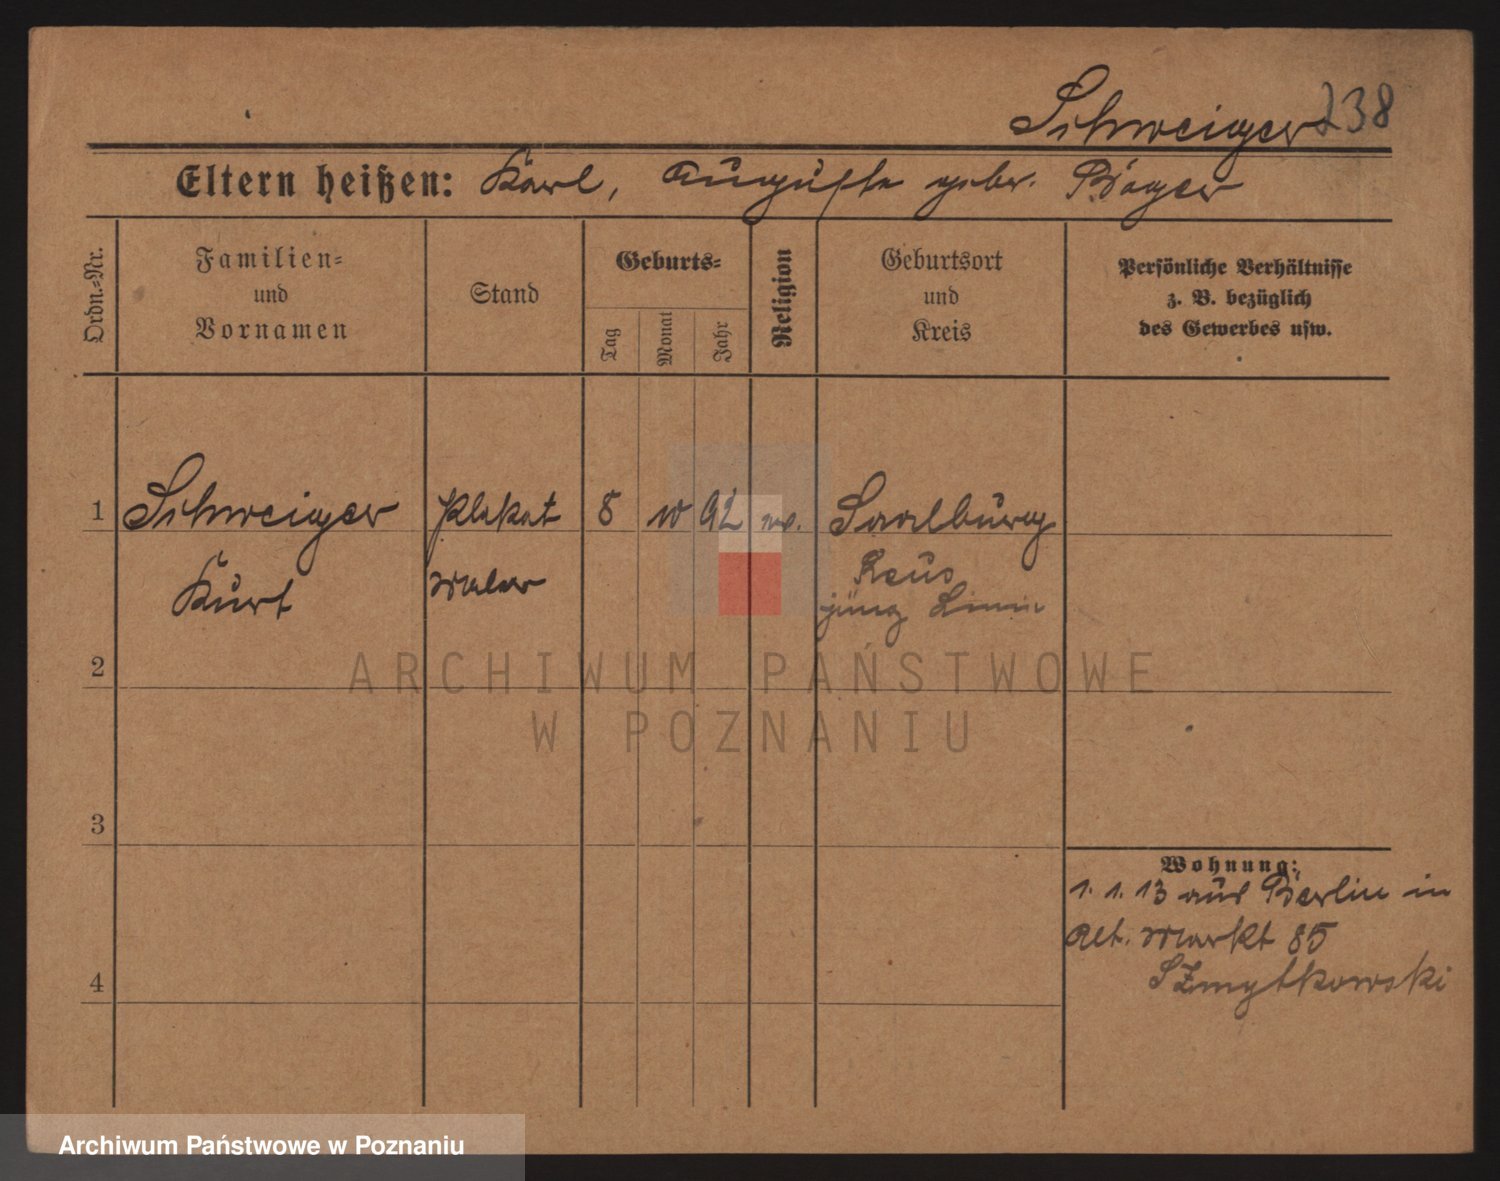 Schweiger 238
Eltern heißen: Karl, Auguste gebr. Bayer
Ordn.-Nr.
Familien-
und
Vornamen
Stand
Geburts-
Tag
Monat
Jahr
Religion
Geburtsort
und
Kreis
Persönliche Verhältnisse
z. B. bezüglich
des Gewerbes usw.
1 Schweiger Plakat 8 10 92 ev. Saalburg
Kurt maler Reus
jüng Linie
2
ARCHIWUM PAŃSTWOWE
W POZNANIU
3
Wohnung:
1. 1. 13 aus Berlin in
Alt. Markt 85
4 Szmytkowski
Archiwum Państwowe w Poznaniu